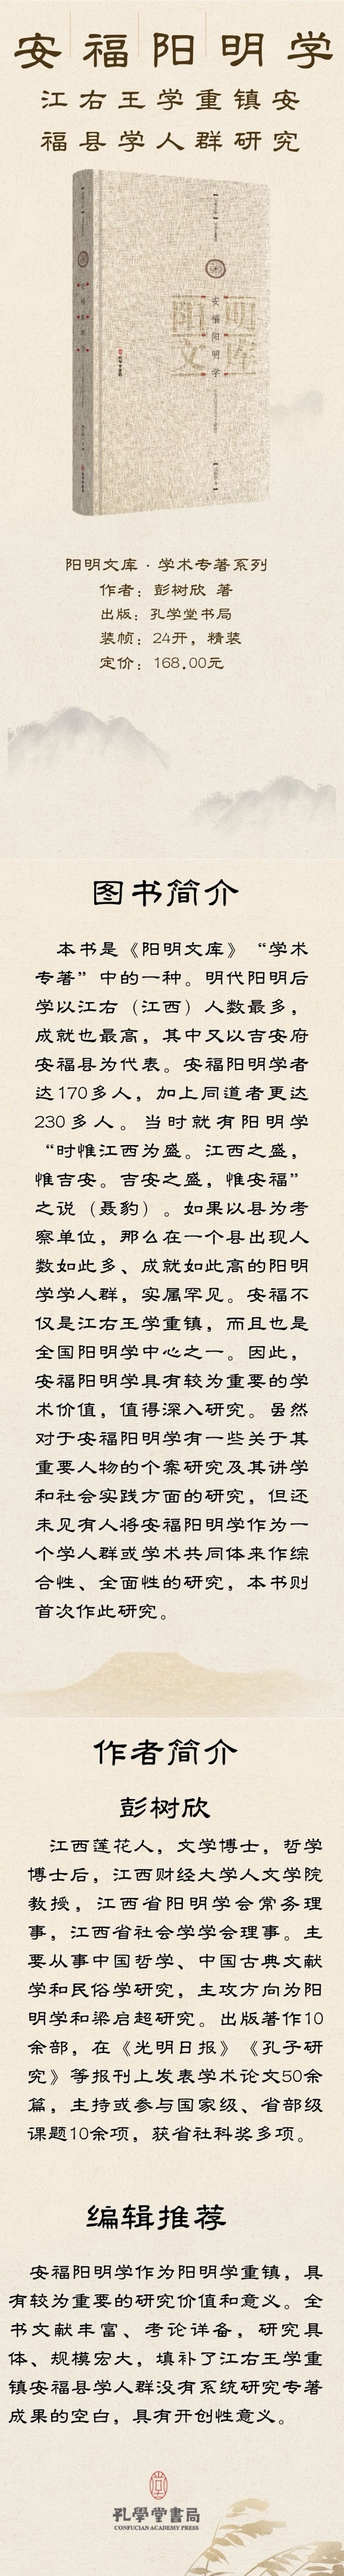 安福阳明学
江右王学重镇安
福县学人群研究
阳明
文库
安福阳明学
阳明文库·学术专著系列
作者：彭树欣 著
出版：孔学堂书局
装帧：24开，精装
定价：168.00元
图书简介
本书是《阳明文库》“学术
专著”中的一种。明代阳明后
学以江右（江西）人数最多，
成就也最高，其中又以吉安府
安福县为代表。安福阳明学者
达170多人，加上同道者更达
230多人。当时就有阳明学
“时惟江西为盛。江西之盛，
惟吉安。吉安之盛，惟安福”
之说（聂豹）。如果以县为考
察单位，那么在一个县出现人
数如此多、成就如此高的阳明
学学人群，实属罕见。安福不
仅是江右王学重镇，而且也是
全国阳明学中心之一。因此，
安福阳明学具有较为重要的学
术价值，值得深入研究。虽然
对于安福阳明学有一些关于其
重要人物的个案研究及其讲学
和社会实践方面的研究，但还
未见有人将安福阳明学作为一
个学人群或学术共同体来作综
合性、全面性的研究，本书则
首次作此研究。
作者简介
彭树欣
江西莲花人，文学博士，哲学
博士后，江西财经大学人文学院
教授，江西省阳明学会常务理
事，江西省社会学学会理事。主
要从事中国哲学、中国古典文献
学和民俗学研究，主攻方向为阳
明学和梁启超研究。出版著作10
余部，在《光明日报》《孔子研
究》等报刊上发表学术论文50余
篇，主持或参与国家级、省部级
课题10余项，获省社科奖多项。
编辑推荐
安福阳明学作为阳明学重镇，具
有较为重要的研究价值和意义。全
书文献丰富、考论详备，研究具
体、规模宏大，填补了江右王学重
镇安福县学人群没有系统研究专著
成果的空白，具有开创性意义。
孔學堂書局
CONFUCIAN ACADEMY PRESS